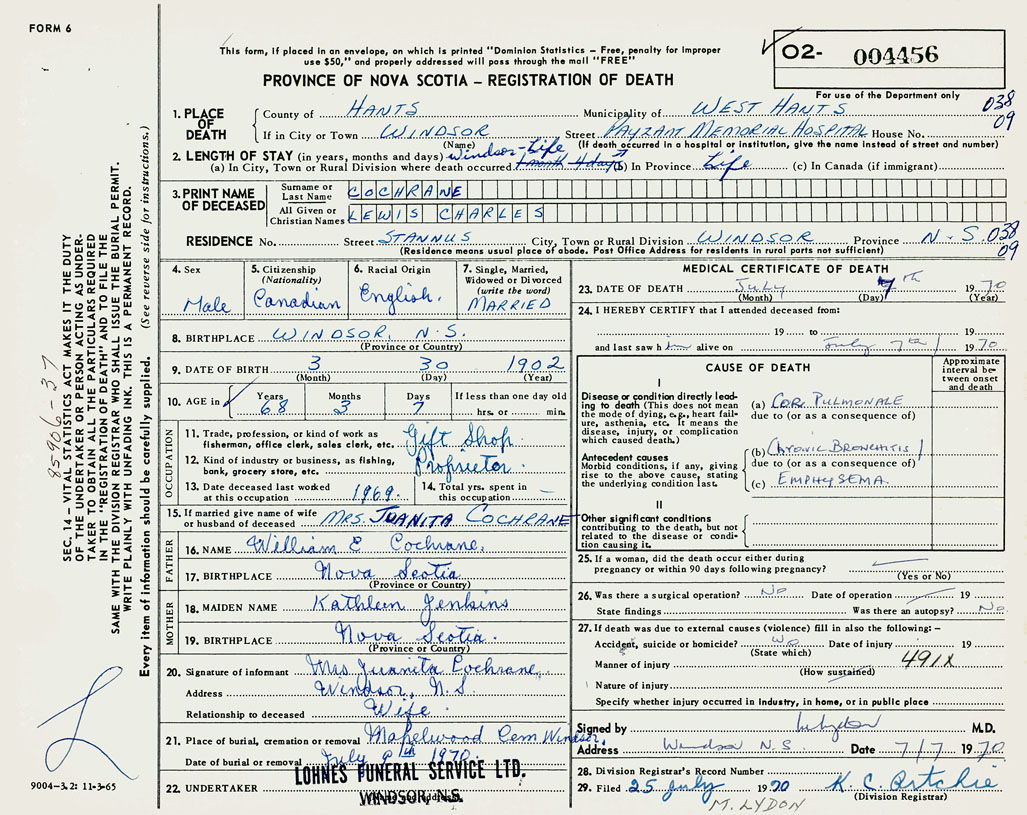 FORM 6
This form, if placed in an envelope, on which is printed "Dominion Statistics – Free, penalty for improper
use $50," and properly addressed will pass through the mail "FREE"
PROVINCE OF NOVA SCOTIA – REGISTRATION OF DEATH
02- 004456
For use of the Department only
038
09
1. PLACE OF DEATH
County of HANTS Municipality of WEST HANTS
If in City or Town WINDSOR Street PAYZANT MEMORIAL HOSPITAL House No.
(Name) (If death occurred in a hospital or institution, give the name instead of street and number)
2. LENGTH OF STAY (in years, months and days) Windsor - Life
(a) In City, Town or Rural Division where death occurred 1 month 4 days (b) In Province Life (c) In Canada (if immigrant)
3. PRINT NAME OF DECEASED
Surname or Last Name COCHRANE
All Given or Christian Names LEWIS CHARLES
RESIDENCE No. Street STANNUS City, Town or Rural Division WINDSOR Province N-S. 038
09
(Residence means usual place of abode. Post Office Address for residents in rural parts not sufficient)
4. Sex
Male
5. Citizenship
(Nationality)
Canadian
6. Racial Origin
English.
7. Single, Married,
Widowed or Divorced
(write the word)
MARRIED
8. BIRTHPLACE WINDSOR, N.S.
(Province or Country)
9. DATE OF BIRTH 3 30 1902
(Month) (Day) (Year)
10. AGE in Years Months Days If less than one day old
68 3 7 hrs. or min.
OCCUPATION
11. Trade, profession, or kind of work as
fisherman, office clerk, sales clerk, etc. Gift Shop
12. Kind of industry or business, as fishing,
bank, grocery store, etc. Proprietor.
13. Date deceased last worked
at this occupation 1969.
14. Total yrs. spent in
this occupation –
15. If married give name of wife
or husband of deceased MRS. JUANITA COCHRANE
FATHER
16. NAME William E Cochrane,
17. BIRTHPLACE Nova Scotia
(Province or Country)
MOTHER
18. MAIDEN NAME Kathleen Jenkins
19. BIRTHPLACE Nova Scotia.
(Province or Country)
20. Signature of informant Mrs. Juanita Cochrane,
Address Windsor, N.S.
Relationship to deceased Wife.
21. Place of burial, cremation or removal Mapelwood Cem Windsor.
Date of burial or removal July 9th 1970.
22. UNDERTAKER LOHNES FUNERAL SERVICE LTD.
WINDSOR, N.S.
MEDICAL CERTIFICATE OF DEATH
23. DATE OF DEATH July 7th 1970
(Month) (Day) (Year)
24. I HEREBY CERTIFY that I attended deceased from:
19 to 19
and last saw h im alive on July 7th 1970
CAUSE OF DEATH
Approximate
interval be-
tween onset
and death
I
Disease or condition directly lead-
ing to death (This does not mean
the mode of dying, e.g., heart fail-
ure, asthenia, etc. It means the
disease, injury, or complication
which caused death.)
(a) COR PULMONALE
due to (or as a consequence of)
Antecedent causes
Morbid conditions, if any, giving
rise to the above cause, stating
the underlying condition last.
(b) CHRONIC BRONCHITIS
due to (or as a consequence of)
(c) EMPHYSEMA
II
Other significant conditions
contributing to the death, but not
related to the disease or condi-
tion causing it.
25. If a woman, did the death occur either during
pregnancy or within 90 days following pregnancy?
(Yes or No)
26. Was there a surgical operation? No Date of operation 19
State findings Was there an autopsy? No
27. If death was due to external causes (violence) fill in also the following: –
Accident, suicide or homicide? No Date of injury 19
(State which)
Manner of injury 491X
(How sustained)
Nature of injury
Specify whether injury occurred in industry, in home, or in public place
Signed by M Lydon M.D.
Address Windsor N.S Date 7/7 1970
28. Division Registrar's Record Number
29. Filed 25 July 1970 K. C. Ritchie
(Division Registrar)
M. LYDON
9004-3.2: 11-3-65
85906-37
SEC. 14 – VITAL STATISTICS ACT MAKES IT THE DUTY
OF THE UNDERTAKER OR PERSON ACTING AS UNDER-
TAKER TO OBTAIN ALL THE PARTICULARS REQUIRED
IN THE "REGISTRATION OF DEATH" AND TO FILE THE
SAME WITH THE DIVISION REGISTRAR WHO SHALL ISSUE THE BURIAL PERMIT.
WRITE PLAINLY WITH UNFADING INK. THIS IS A PERMANENT RECORD.
Every item of information should be carefully supplied. (See reverse side for instructions.)